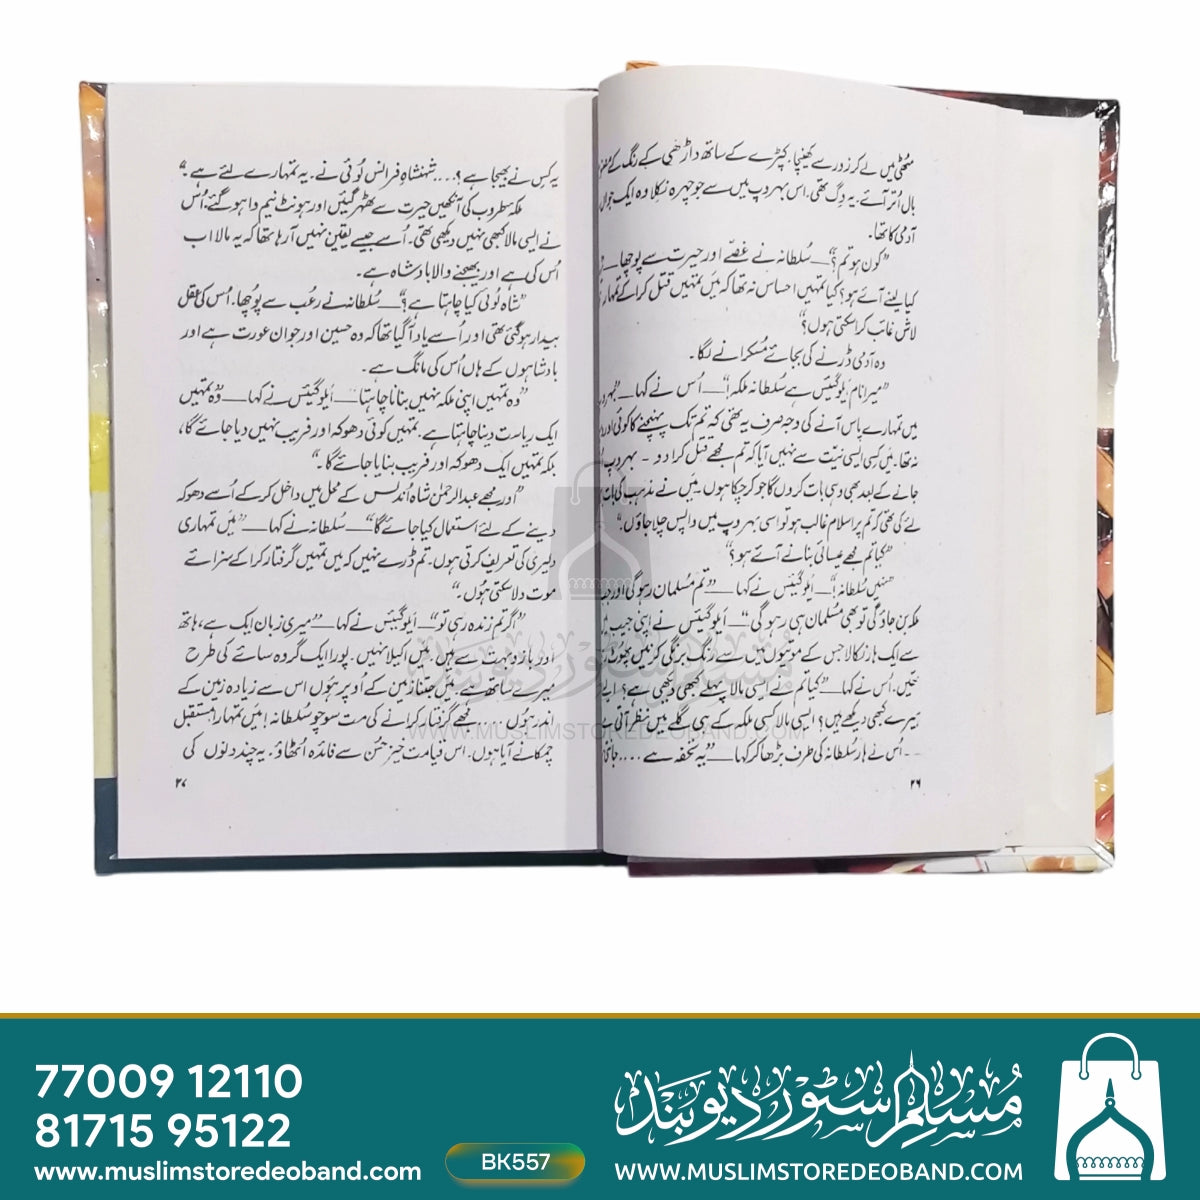 مُٹھی میں لے کر زور سے کھینچا۔ کپڑے کے ساتھ داڑھی کے رنگ کے
بال اُتر آئے۔ یہ دِگ تھی۔ اس بہروپ میں سے جو چہرہ نِکلا وہ ایک جواں
آدمی کا تھا۔
”کون ہو تم؟“ سُلطانہ نے غصّے اور حیرت سے پوچھا ــــ
کیا لینے آئے ہو؟ کیا تمہیں احساس نہ تھا کہ میں تمہیں قتل کرا کے تمہاری
لاش غائب کرا سکتی ہوں؟“
وہ آدمی ڈرنے کی بجائے مُسکرانے لگا۔
”میرا نام ایلوگیئس ہے سُلطانہ ملکہ!“ ــــ اُس نے کہا ــــ ”بہروپ
میں تمہارے پاس آنے کی وجہ صرف یہ تھی کہ تم تک پہنچنے کا کوئی اور
نہ تھا۔ میں کِسی ایسی نیت سے نہیں آیا کہ تم مجھے قتل کرا دو ۔ بہروپ
جانے کے بعد بھی وہی بات کروں گا جو کر چکا ہوں۔ میں نے مذہب کی بات
لئے کی تھی کہ تم پر اسلام غالب ہو تو اسی بہروپ میں واپس چلا جاؤں۔“
”کیا تم مجھے عیسائی بنانے آئے ہو؟“
”نہیں سُلطانہ!“ ــــ ایلوگیئس نے کہا ــــ ”تم مُسلمان رہو گی اور
ملکہ بن جاؤ گی تو بھی مُسلمان ہی رہو گی“ ــــ ایلوگیئس نے اپنی جیب میں
سے ایک ہار نکالا جس کے موتیوں میں سے رنگ برنگی کرنیں پھُوٹ
تھیں۔ اُس نے کہا ــــ ”کیا تم نے ایسی مالا پہلے کبھی دیکھی ہے؟
ہیرے کبھی دیکھے ہیں؟ ایسی مالا کسی ملکہ کے ہی گلے میں نظر آتی ہے
۔۔ اُس نے ہار سُلطانہ کی طرف بڑھا کر کہا ــــ ”یہ تحفہ ہے .... جانتی
۲۶
یہ کِس نے بھیجا ہے؟ .... شہنشاہِ فرانس لُوئی نے۔ یہ تمہارے لئے ہے۔“
ملکہ طروب کی آنکھیں حیرت سے ٹھہر گئیں اور ہونٹ نیم وا ہو گئے۔ اُس
نے ایسی مالا کبھی نہیں دیکھی تھی۔ اُسے جیسے یقین نہیں آ رہا تھا کہ یہ مالا اب
اُس کی ہے اور بھیجنے والا بادشاہ ہے۔
”شاہ لُوئی کیا چاہتا ہے؟“ ــــ سُلطانہ نے رعُب سے پُوچھا۔ اُس کی عقل
بیدار ہو گئی تھی اور اُسے یاد آ گیا تھا کہ وہ حسین اور جوان عورت ہے اور
بادشاہوں کے ہاں اُس کی مانگ ہے۔
”وہ تمہیں اپنی ملکہ نہیں بنانا چاہتا“ ــــ ایلوگیئس نے کہا ــــ ”وہ تمہیں
ایک ریاست دینا چاہتا ہے۔ تمہیں کوئی دھوکہ اور فریب نہیں دیا جائے گا،
بلکہ تمہیں ایک دھوکہ اور فریب بنایا جائے گا۔“
”اور مجھے عبدالرحمٰن شاہ اُندلس کے محل میں داخل کر کے اُسے دھوکہ
دینے کے لئے استعمال کیا جائے گا“ ــــ سُلطانہ نے کہا ــــ ”میں تمہاری
دلیری کی تعریف کرتی ہوں۔ تم ڈرے نہیں کہ میں تمہیں گرفتار کرا کے سزائے
موت دلا سکتی ہُوں۔“
”اگر تم زندہ رہی تو“ ــــ ایلوگیئس نے کہا ــــ ”میری زبان ایک ہے، ہاتھ
اور بازو بہت سے ہیں۔ میں اکیلا نہیں۔ پورا ایک گروہ سائے کی طرح
میرے ساتھ ہے۔ میں جتنا زمین کے اُوپر ہُوں اس سے زیادہ زمین کے
اندر ہُوں .... مجھے گرفتار کرانے کی مت سوچو سُلطانہ! میں تمہارا مستقبل
چمکانے آیا ہوں۔ اس قیامت خیز حُسن سے فائدہ اُٹھاؤ۔ یہ چند دنوں کی
۲۷
مُسلم سٹور دیوبند
WWW.MUSLIMSTOREDEOBAND.COM
77009 12110
81715 95122
www.muslimstoredeoband.com
BK557
مُسلم سٹور دیوبند
WWW.MUSLIMSTOREDEOBAND.COM